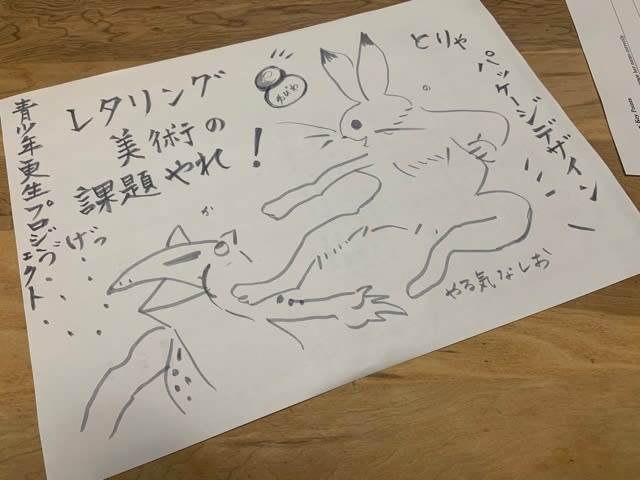 とりゃ
パッケージデザイン
ゆびわ
レタリング
美術の
課題やれ！
青少年更生プロジェクト
げっ
の
か
やる気なしお